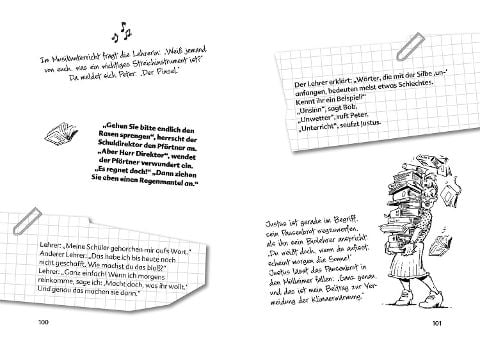 Im Musikunterricht fragt die Lehrerin: „Weiß jemand
von euch, was ein wichtiges Streichinstrument ist?“
Da meldet sich Peter: „Der Pinsel.“
„Gehen Sie bitte endlich den
Rasen sprengen“, herrscht der
Schuldirektor den Pförtner an.
„Aber Herr Direktor“, wendet
der Pförtner verwundert ein.
„Es regnet doch!“ „Dann ziehen
Sie eben einen Regenmantel an.“
Lehrer: „Meine Schüler gehorchen mir aufs Wort.“
Anderer Lehrer: „Das habe ich bis heute noch
nicht geschafft. Wie machst du das bloß?“
Lehrer: „Ganz einfach! Wenn ich morgens
reinkomme, sage ich: ‚Macht doch, was ihr wollt.‘
Und genau das machen sie dann.“
100
Der Lehrer erklärt: „Wörter, die mit der Silbe ‚un-‘
anfangen, bedeuten meist etwas Schlechtes.
Kennt ihr ein Beispiel?“
„Unsinn“, sagt Bob.
„Unwetter“, ruft Peter.
„Unterricht“, seufzt Justus.
Justus ist gerade im Begriff,
sein Pausenbrot wegzumampfen,
als ihn sein Biolehrer anspricht:
„Du weißt doch, wenn du aufisst,
scheint morgen die Sonne.“
Justus lässt das Pausenbrot in
den Mülleimer fallen: „Ganz genau,
und das ist mein Beitrag zur Ver-
meidung der Klimaerwärmung.“
101